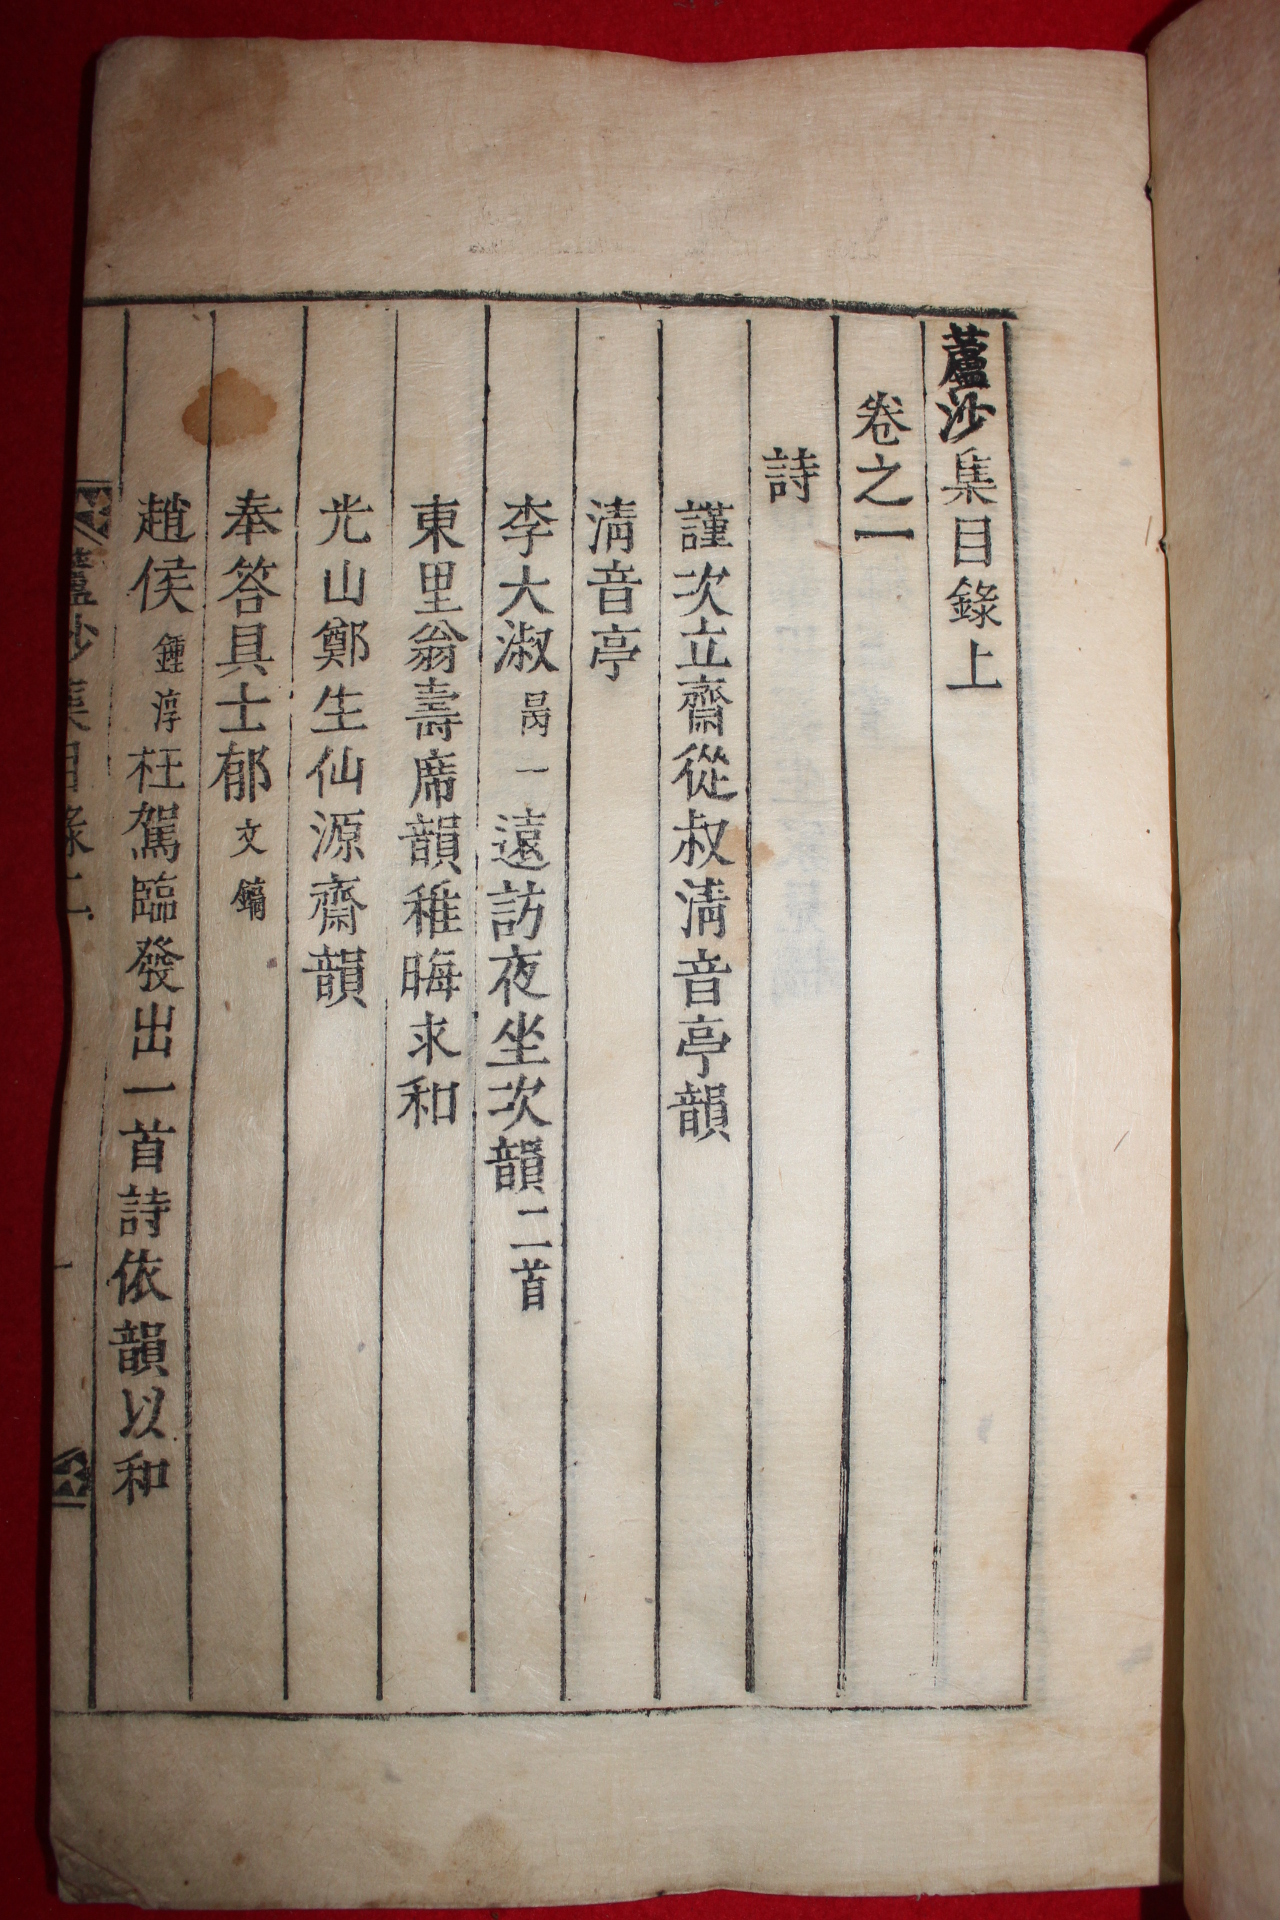 蘆沙集目錄上
卷之一
詩
謹次立齋從叔淸音亭韻
淸音亭
李大淑昺一遠訪夜坐次韻二首
東里翁壽席韻稚晦求和
光山鄭生仙源齋韻
奉答具士郁文鏑
趙侯鍾淳枉駕臨發出一首詩依韻以和
蘆沙集目錄上
一